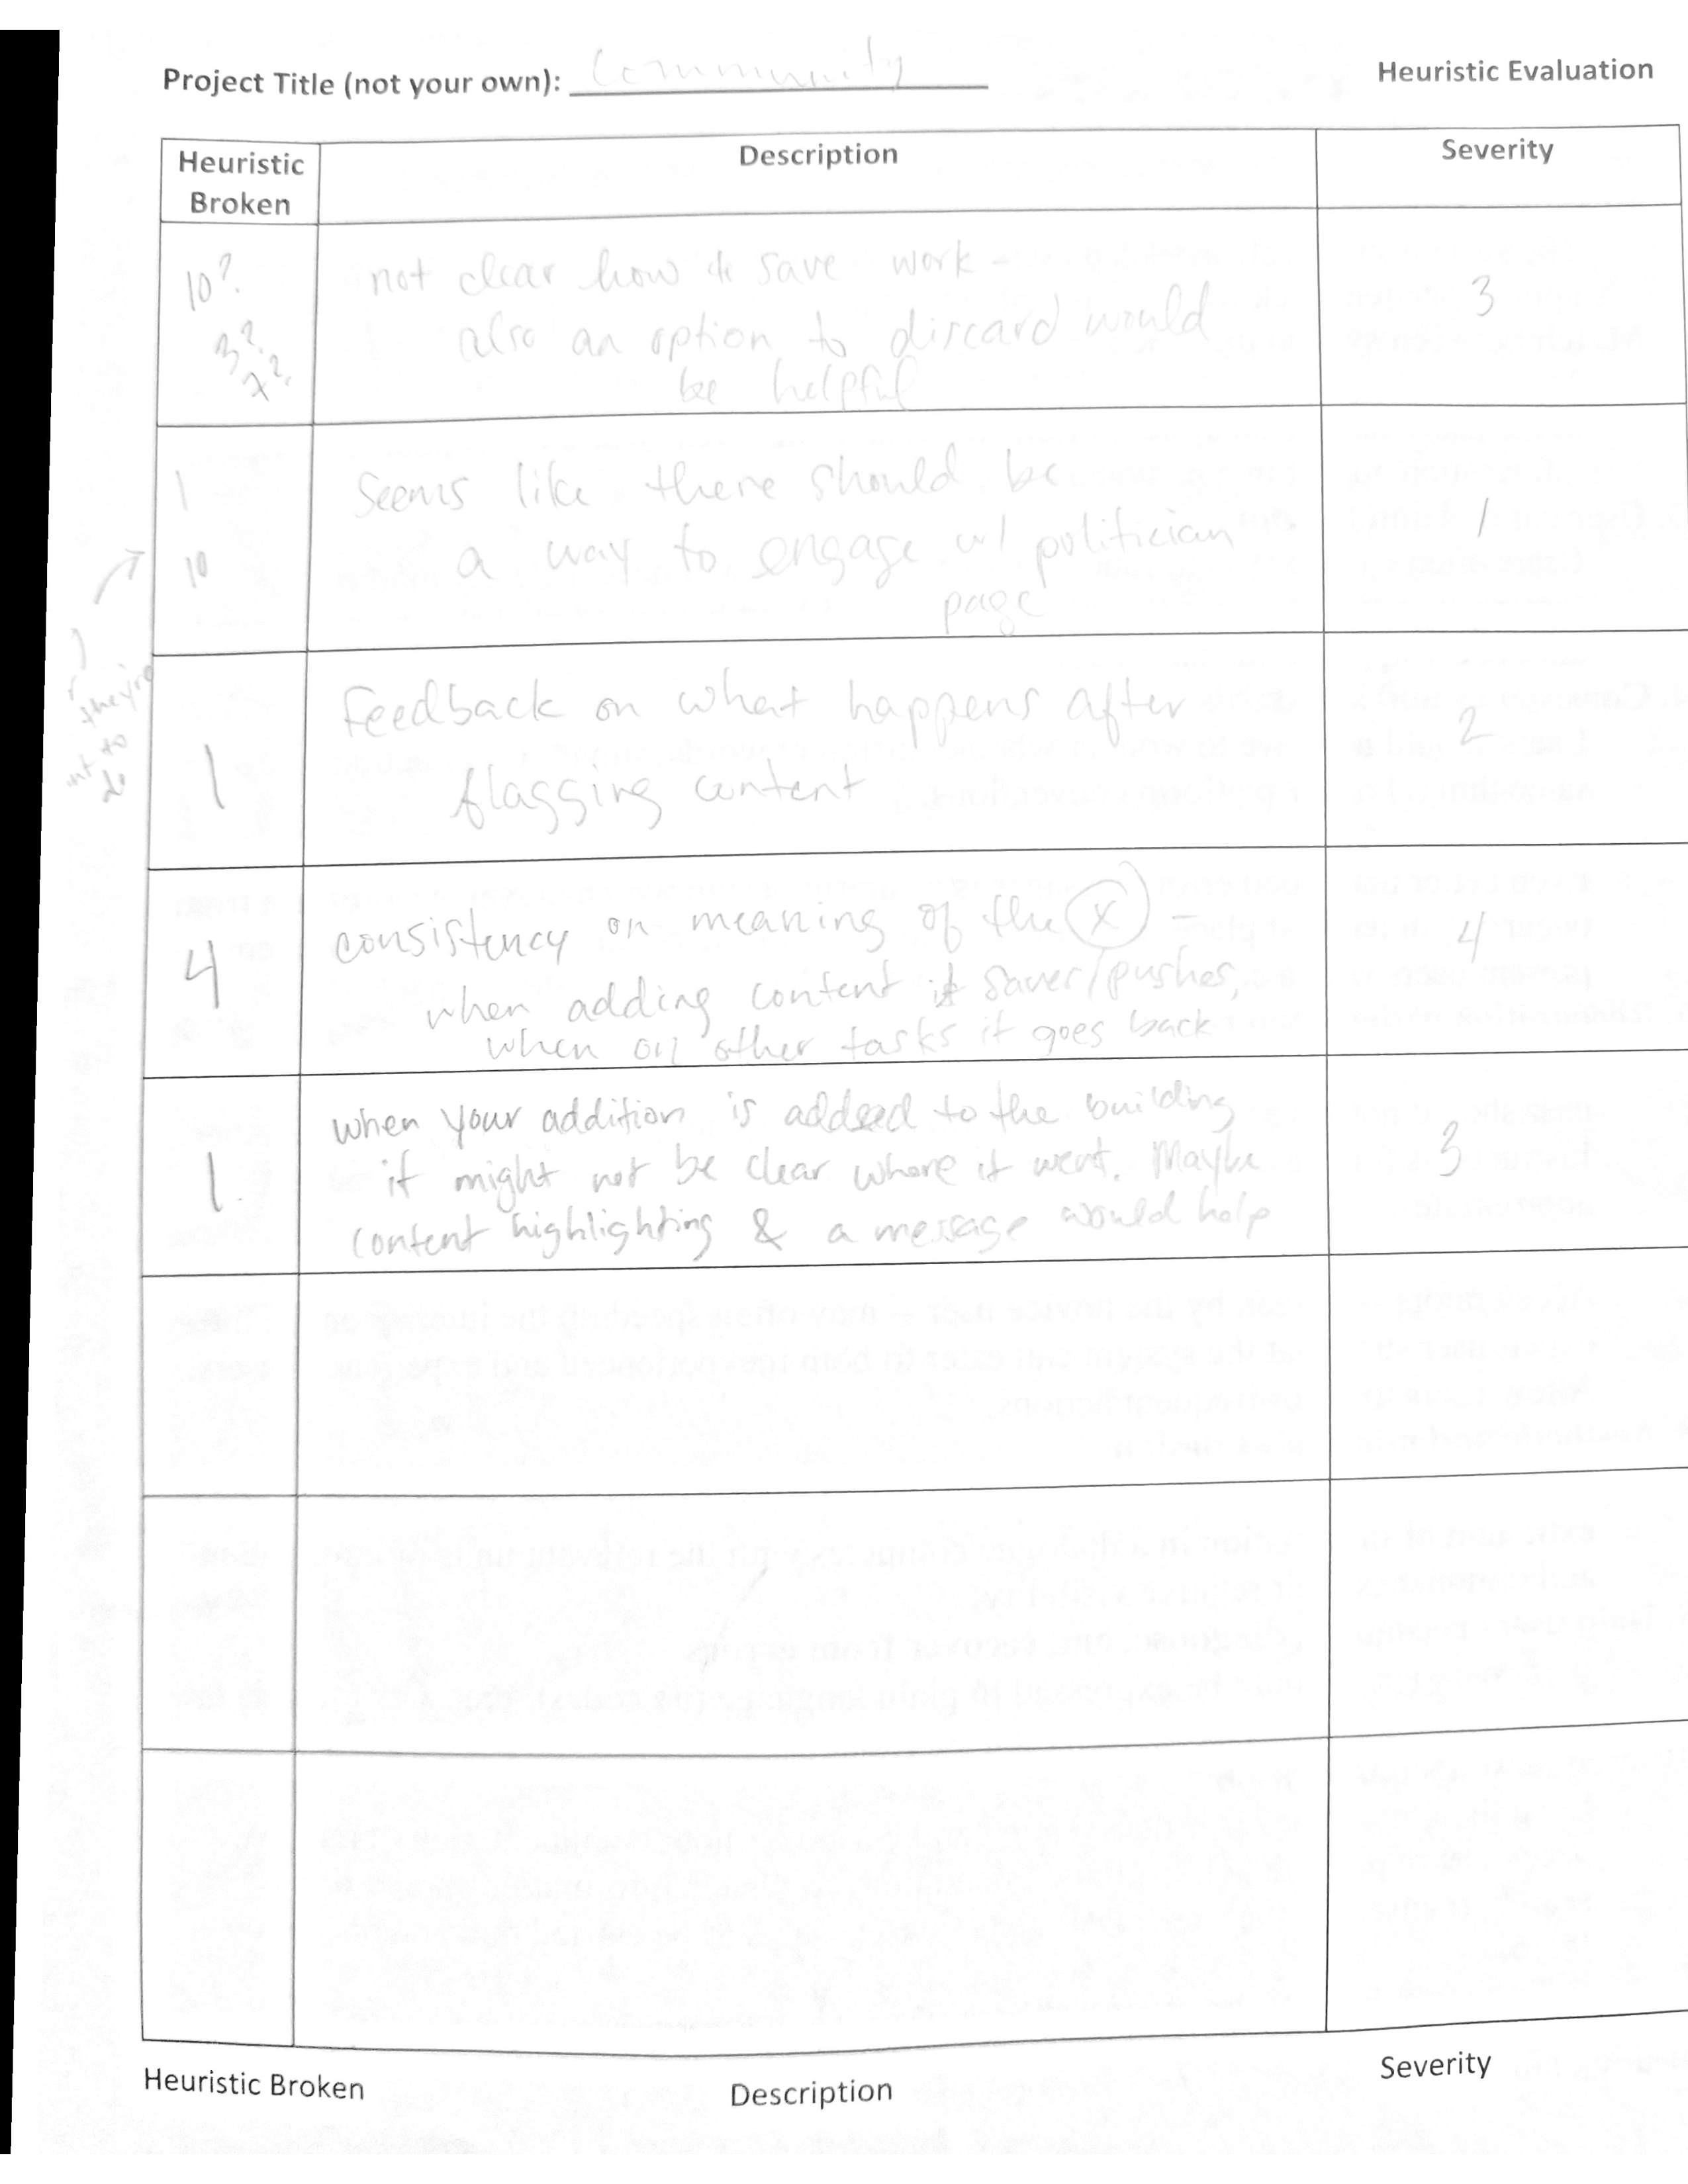 Project Title (not your own): Community
Heuristic Evaluation
Heuristic Broken
Description
Severity
10?
3?
7?
not clear how to save work -
also an option to discard would
be helpful
3
1
10
Seems like there should be
a way to engage w/ politician
page
1
they're
not to
do
1
Feedback on what happens after
flagging content
2
4
consistency on meaning of the X -
when adding content it saves/pushes,
when on other tasks it goes back
4
1
when your addition is added to the building
it might not be clear where it went. Maybe
content highlighting & a message would help
3
Heuristic Broken
Description
Severity